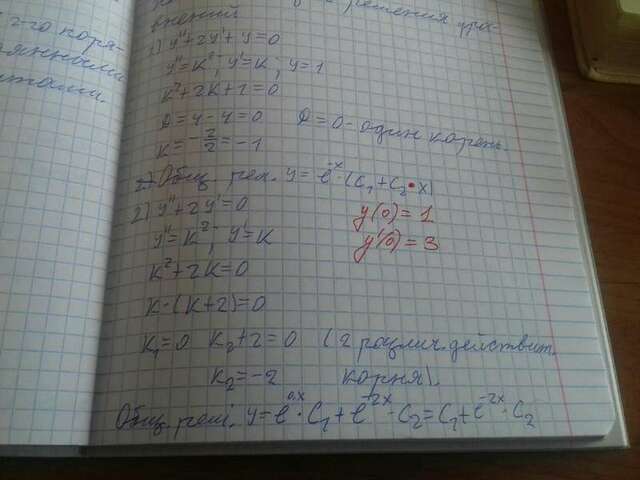 2-го поря-
решения урав-
нений
1) y'' + 2y' + y = 0
y'' = k²; y' = k; y = 1
k² + 2k + 1 = 0
D = 4 - 4 = 0 D = 0 - один корень.
k = -2/2 = -1
2) Общ. реш. y = e^-x · (C₁ + C₂ · x)
2) y'' + 2y' = 0 y(0) = 1
y'' = k²; y' = k y'(0) = 3
k² + 2k = 0
k · (k + 2) = 0
k₁ = 0 k₂ + 2 = 0 (2 различ. действит.
k₂ = -2 корня).
Общ. реш. y = e^0·x · C₁ + e^-2x · C₂ = C₁ + e^-2x · C₂